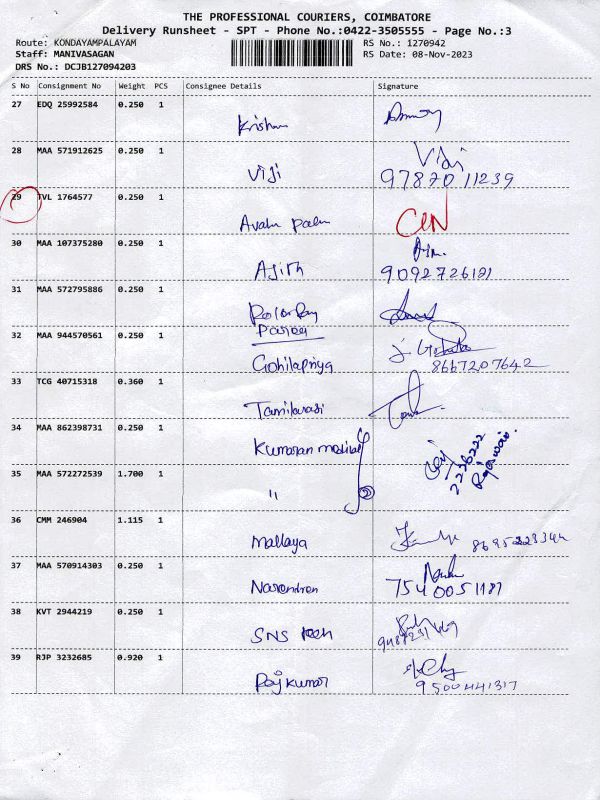 THE PROFESSIONAL COURIERS, COIMBATORE
Delivery Runsheet - SPT - Phone No.:0422-3505555 - Page No.:3
Route: KONDAYAMPALAYAM RS No.: 1270942
Staff: MANIVASAGAN RS Date: 08-Nov-2023
DRS No.: DCJB127094203
S No Consignment No Weight PCS Consignee Details Signature
27 EDQ 25992584 0.250 1
28 MAA 571912625 0.250 1
Viji
Viji
97870 11239
29 TVL 1764577 0.250 1
30 MAA 107375280 0.250 1
Ajith
9092726191
31 MAA 572795886 0.250 1
32 MAA 944570561 0.250 1
Gohilapriya
8667207642
33 TCG 40715318 0.360 1
Tamilarasi
34 MAA 862398731 0.250 1
Kumaran medical
35 MAA 572272539 1.700 1
"
36 CMM 246904 1.115 1
Mallaya
37 MAA 570914303 0.250 1
Narendren
7540051187
38 KVT 2944219 0.250 1
SNS
39 RJP 3232685 0.920 1
Rajkumar
9500441317